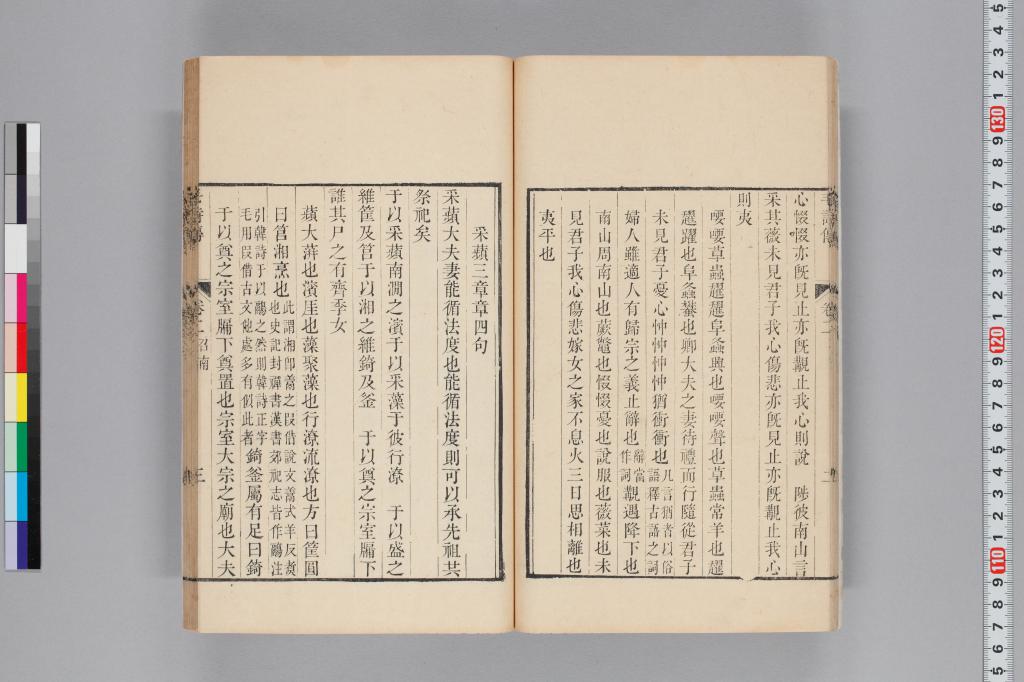 心惙惙亦旣見止亦旣覯止我心則說　陟彼南山言
采其薇未見君子我心傷悲亦旣見止亦旣覯止我心
則夷
喓喓草蟲趯趯阜螽興也喓喓聲也草蟲常羊也趯
趯躍也阜螽蠜也卿大夫之妻待禮而行隨從君子
未見君子憂心忡忡忡忡猶衝衝也凡言猶者以俗語釋古語之詞
婦人雖適人有歸宗之義止辭也辭當作詞覯遇降下也
南山周南山也蕨鼈也惙惙憂也說服也薇菜也未
見君子我心傷悲嫁女之家不息火三日思相離也
夷平也
采蘋三章章四句
采蘋大夫妻能循法度也能循法度則可以承先祖共
祭祀矣
于以采蘋南澗之濱于以采藻于彼行潦　于以盛之
維筐及筥于以湘之維錡及釜　于以奠之宗室牖下
誰其尸之有齊季女
蘋大蓱也濱厓也藻聚藻也行潦流潦也方曰筐圓
曰筥湘亨也此謂湘卽鬺之叚借說文鬺式羊反煑也史記封禪書漢書郊祀志皆作鬺注
引韓詩于以鬺之然則韓詩正字毛用叚借古文他處多有似此者錡釜屬有足曰錡
于以奠之宗室牖下奠置也宗室大宗之廟也大夫
卷二召南
三